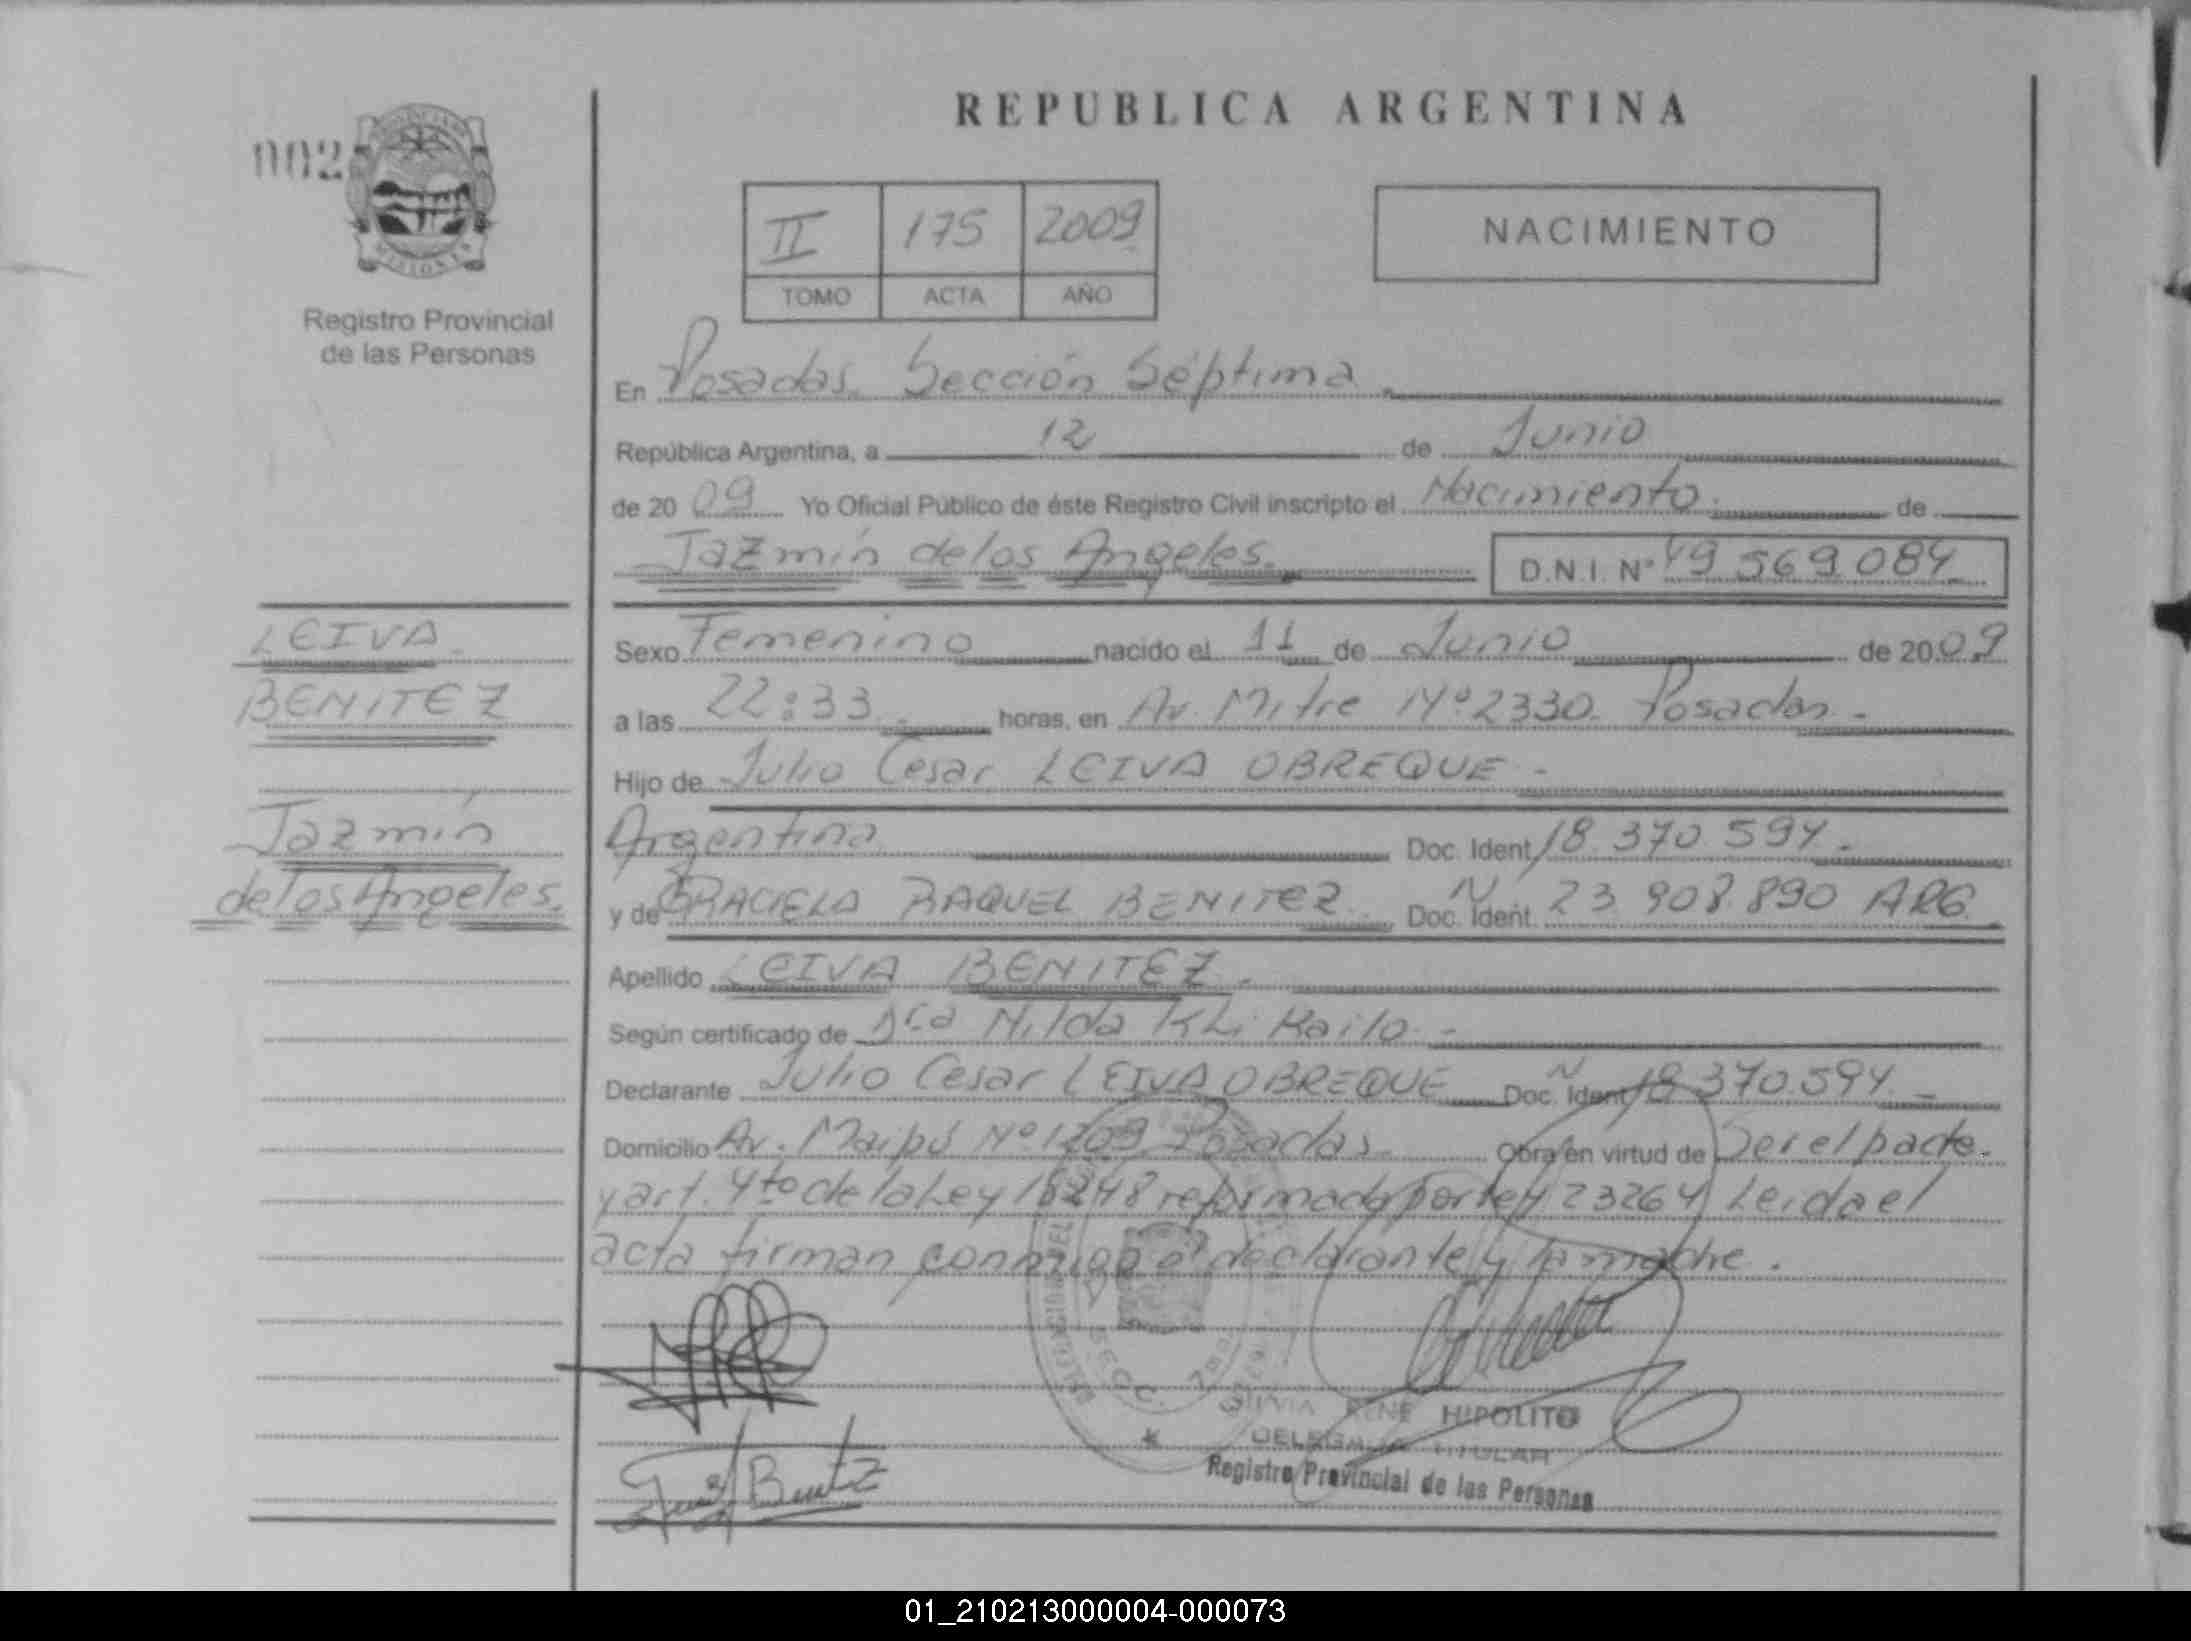 REPUBLICA ARGENTINA
002
Registro Provincial
de las Personas
II 175 2009
TOMO ACTA AÑO
NACIMIENTO
En Posadas. Sección Séptima.
República Argentina, a 12 de Junio
de 20 09 Yo Oficial Público de éste Registro Civil inscripto el Nacimiento. de
Jazmín de los Angeles. D.N.I. N° 49 569 084
LEIVA
BENITEZ
Jazmín
de los Angeles.
Sexo Femenino nacido el 11 de Junio de 20 09
a las 22:33 horas, en Av. Mitre Nº 2330. Posadas.-
Hijo de Julio Cesar LEIVA OBREQUE -
Argentina Doc. Ident 18.370.594.
y de GRACIELA RAQUEL BENITEZ. Doc. Ident. 23 908.890 ARG.
Apellido LEIVA BENITEZ.
Según certificado de Nilda
Declarante Julio Cesar LEIVA OBREQUE Doc. Ident 18 370.594.-
Domicilio Av. Maipú Nº Posadas. Obra en virtud de Ser el padre.
y art. 4to de la Ley 18248 reformado por ley 23264 Leida el
acta firman conmigo el declarante y la madre.
SECC. 7ma
RENE HIPOLITO
DELEGADA TITULAR
Registro Provincial de las Personas
01_210213000004-000073